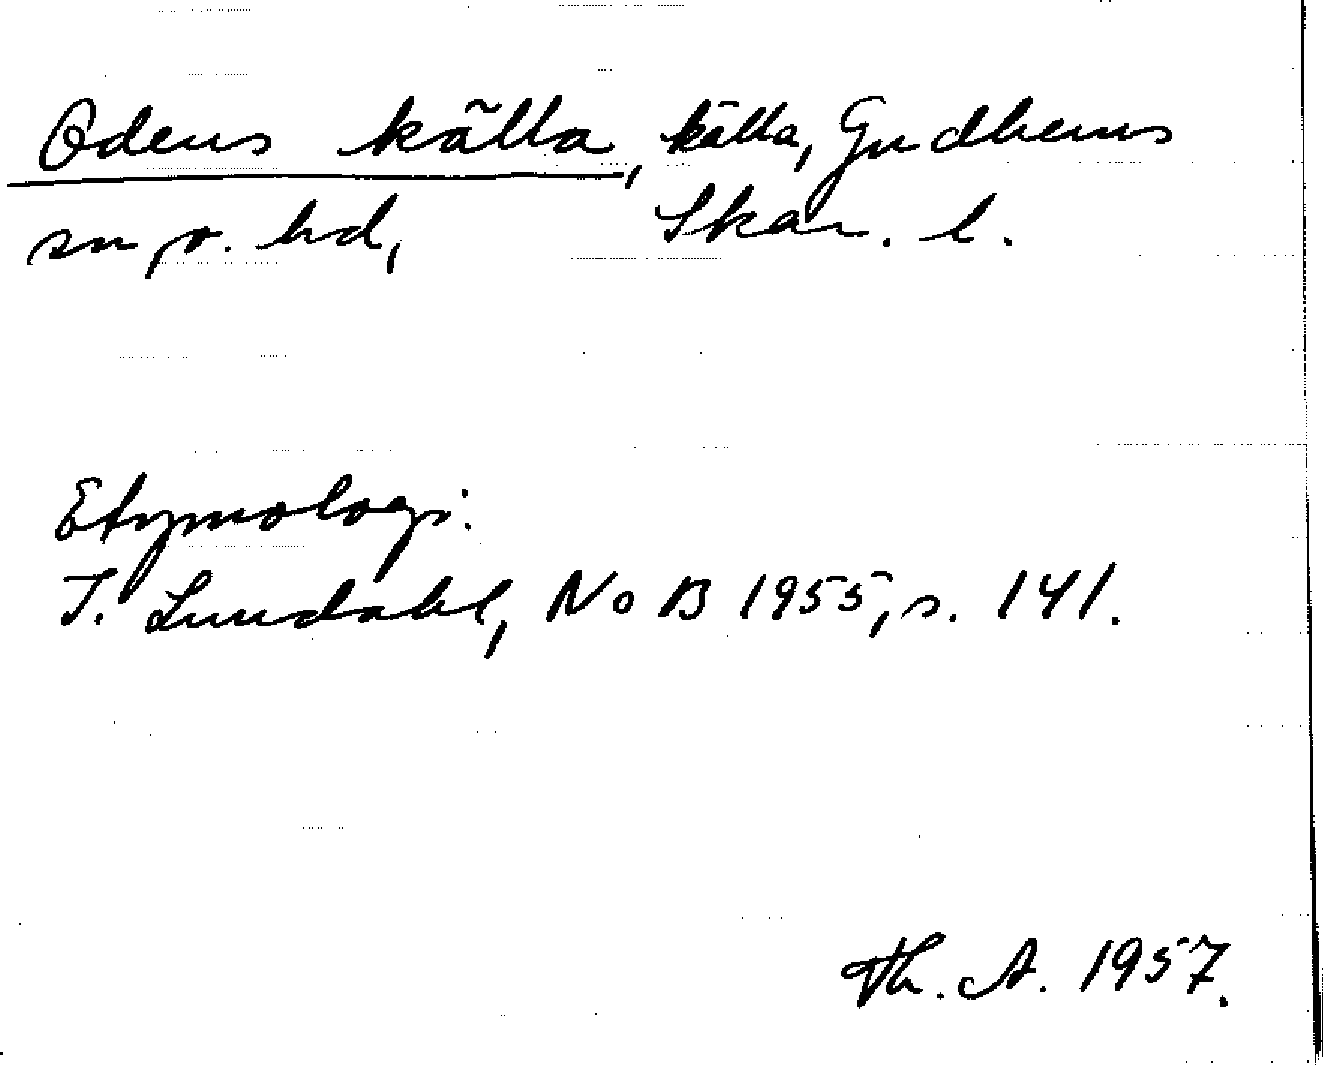 Odens källa, källa, Gudhems
sn o. hd, Skar. l.
Etymologi:
I. Lundahl, NoB 1955, s. 141.
Th. A. 1957.